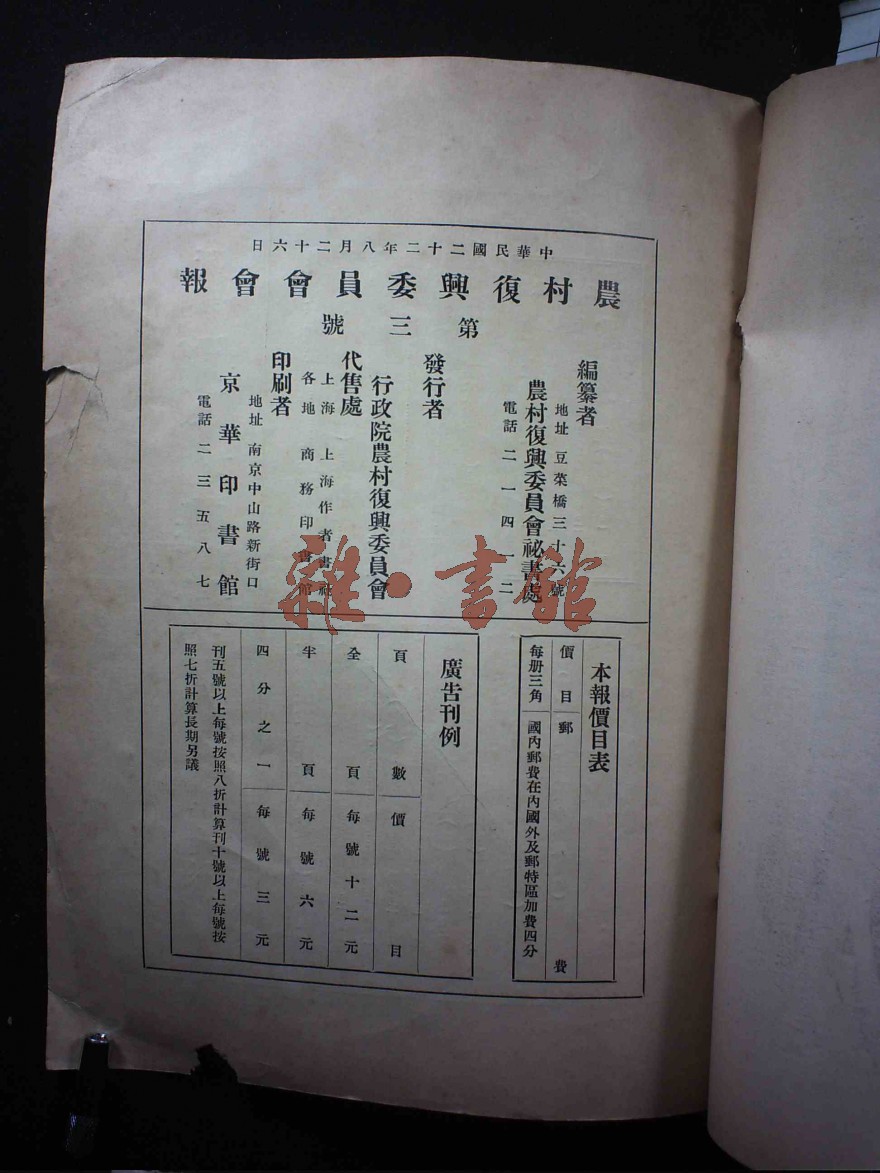 中華民國二十二年八月二十六日
農村復興委員會會報
第三號
編纂者
地址 豆菜橋三十六號
農村復興委員會祕書處
電話 二一四一二
發行者
行政院農村復興委員會
代售處
上海 上海作者書社
各地 商務印書館
印刷者
地址 南京中山路新街口
京華印書館
電話 二三五八七
本報價目表
價目 郵費
每册三角 國內郵費在內國外及郵特區加費四分
廣告刊例
頁數 價目
全頁 每號十二元
半頁 每號六元
四分之一 每號三元
刊五號以上每號按照八折計算刊十號以上每號按
照七折計算長期另議
雜·書館